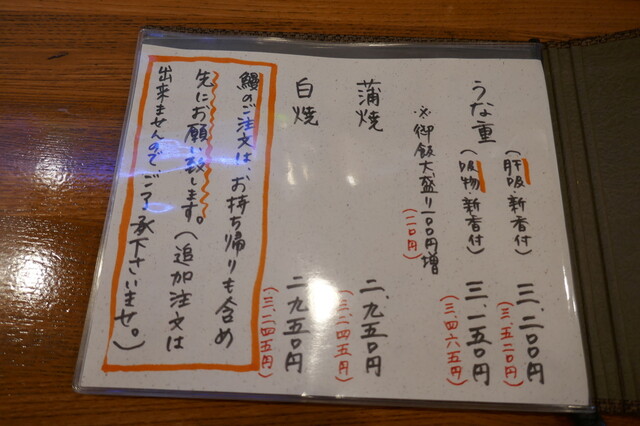 うな重(肝吸・新香付) 三、二〇〇円
(三、五二〇円)
(吸物・新香付) 三、一五〇円
(三、四六五円)
※御飯大盛り一〇〇円増
(一一〇円)
蒲焼 二、九五〇円
(三、二四五円)
白焼 二、九五〇円
(三、二四五円)
鰻のご注文は、お持ち帰りも含め
先にお願い致します。(追加注文は
出来ませんのでご了承下さいませ。)